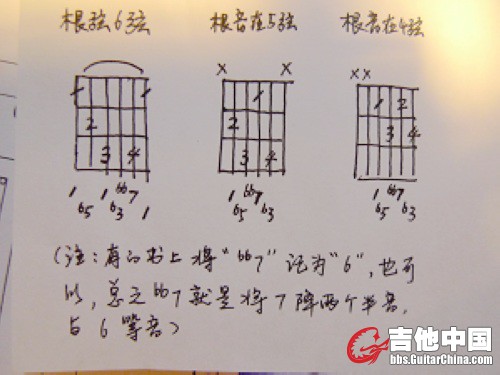 根弦6弦 根音在5弦 根音在4弦
x x xx
1 1 1 1 2
2 2 3 4
3 4 3 4
1 1 bb7 1 bb7 1 bb7
b5 b3 1 b5 b3 b5 b3
(注:有的书上将"bb7"记为"6",也可
以,总之bb7就是将7降两个半音,
与6等音)
吉他中国
bbs.GuitarChina.com